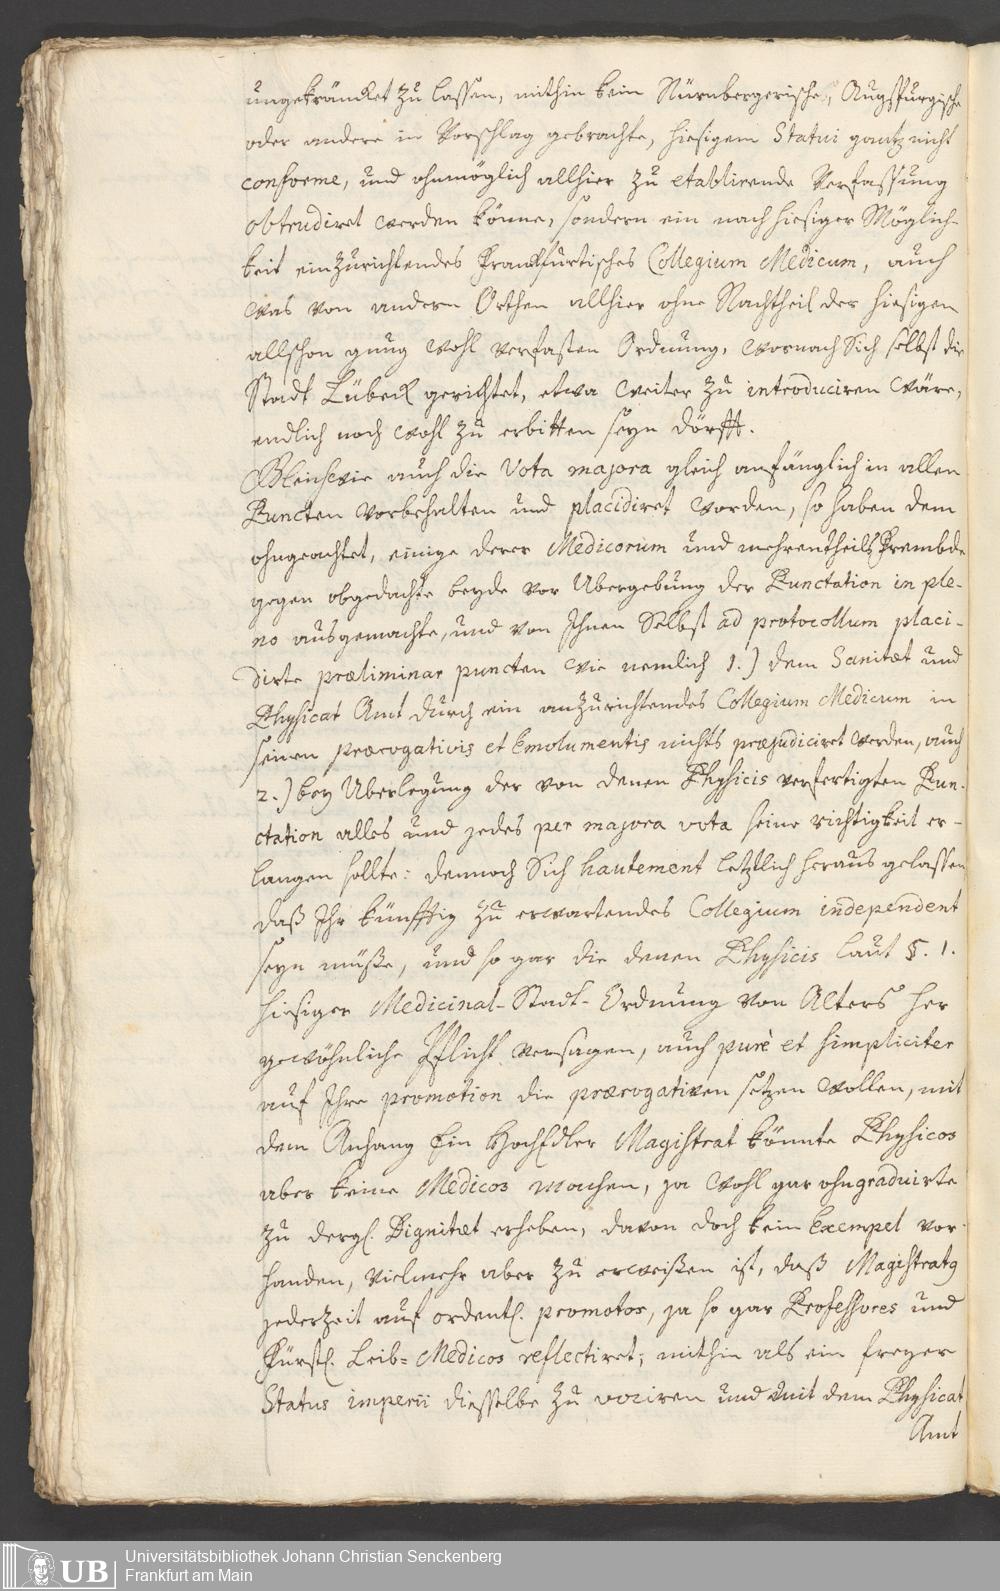 ungekräncket zu lassen, mithin kein Nürnbergerische, Augspurgische
oder andere in Vorschlag gebrachte, hiesigem Statui gantz nicht
conforme, und ohnmöglich allhier zu etablirende Verfassung
obtrudiret werden könne, sondern ein nach hiesiger Möglich-
keit einzurichtendes Franckfurtisches Collegium Medicum, auch
was von andern Orthen allhier ohne Nachtheil der hiesigen
allschon gnug wohl verfasten Ordnung, wornach Sich selbst die
Stadt Lübeck gerichtet, etwa weiter zu introduciren wäre,
endlich noch wohl zu erbitten seyn dörfft.
Gleichwie auch die Vota majora gleich anfänglich in allen
Puncten vorbehalten und placidiret worden, so haben dem
ohngeachtet, einige derer Medicorum und mehrentheils Frembde
gegen obgedachte beyde vor Ubergebung der Punctation in ple-
no ausgemachte, und von Ihnen Selbst ad protocollum placi-
dirte præliminar puncten wie nemlich 1.) dem Sanitæt und
Physicat Amt durch ein anzurichtendes Collegium Medicum in
seinen prærogativis et Emolumentis nichts præjudiciret werden, auch
2.) bey Uberlegung der von denen Physicis verfertigten Pun-
ctation alles und jedes per majora vota seine richtigkeit er-
langen sollte: dennoch Sich hautement letztlich heraus gelassen
daß Ihr künfftig zu erwartendes Collegium independent
seyn müße, und so gar die denen Physicis laut §. 1.
hiesiger Medicinal-Stadt-Ordnung von Alters her
gewöhnliche Pflicht versagen, auch purè et simpliciter
auf Ihre promotion die prærogativen setzen wollen, mit
dem Anhang Ein HochEdler Magistrat könnte Physicos
aber keine Medicos machen, ja wohl gar ohngraduirte
zu dergl. Dignitæt erheben, davon doch kein Exempel vor-
handen, vielmehr aber zu erweißen ist, daß Magistratg
jederzeit auf ordentl. promotos, ja so gar Professores und
Fürstl. Leib=Medicos reflectiret; mithin als ein freyer
Status imperii dieselbe zu vociren und mit dem Physicat
Amt
Universitätsbibliothek Johann Christian Senckenberg
Frankfurt am Main
UB